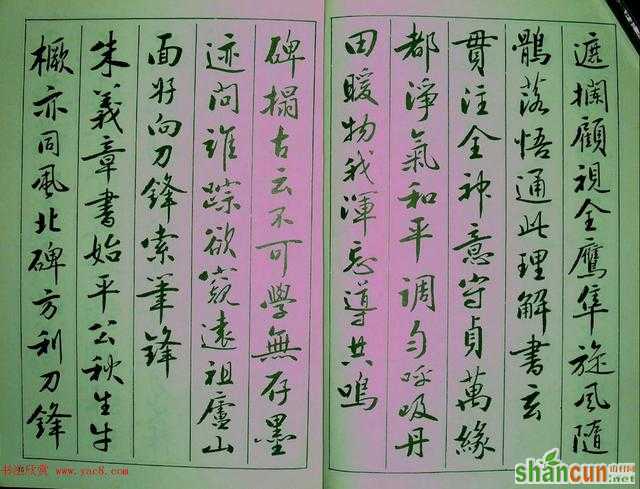 遮攔顧視全鷹隼旋風隨
鶻落悟通此理解書玄
貫注全神意守貞萬緣
都淨氣和平調勻呼吸丹
田暖物我渾忘導共鳴
碑搨古云不可學無存墨
迹問誰踪欲窺遠祖廬山
面好向刀鋒索筆鋒
朱義章書始平公秋生牛
橛亦同風北碑方利刀鋒
书法欣赏 www.yac8.com
shancun
山村网
.net